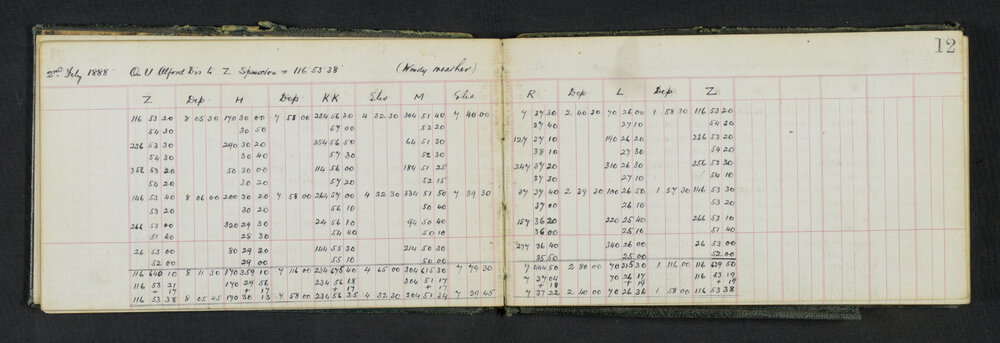 12
2nd July 1888 Q U Alford Dis to Z = 116 53 38 (Windy weather)
Z Dep H Dep KK Eles M Eles R Dep L Dep Z
116 53 20 8 05 30 170 30 00 7 58 00 234 56 20 4 32 30 304 51 40 7 40 00 7 37 30 2 40 30 70 26 00 1 58 30 116 53 20
54 30 30 50 57 00 52 20 37 40 27 10 54 30
236 53 30 290 30 20 354 56 50 64 51 30 127 37 10 190 26 20 236 53 20
54 30 30 40 57 30 52 30 38 10 27 30 54 30
356 53 20 50 30 00 114 56 00 184 51 25 247 37 20 310 26 30 356 53 30
54 20 30 20 57 20 52 15 37 30 27 10 54 10
146 53 40 8 06 00 200 30 20 7 58 00 264 57 00 4 32 30 334 51 50 7 39 30 37 37 40 2 39 30 100 26 50 1 57 30 146 53 30
53 20 30 20 56 10 50 40 37 00 26 10 53 20
266 53 00 320 29 30 24 56 10 94 50 40 157 36 20 220 25 40 266 53 10
51 40 28 30 54 40 50 10 36 00 25 10 51 40
26 53 00 80 29 20 144 55 30 214 50 30 277 36 40 340 26 00 26 53 00
52 00 29 00 55 10 50 00 35 50 25 00 52 00
116 640 10 8 11 30 170 359 10 7 116 00 234 675 40 4 65 00 304 615 30 7 79 30 7 444 50 2 80 00 70 315 30 1 116 00 116 639 50
116 53 21 170 29 56 234 56 18 304 51 17 7 37 04 70 26 17 116 53 19
+ 17 + 17 + 17 + 17 + 18 + 19 + 19
116 53 38 8 05 45 170 30 13 7 58 00 234 56 35 4 32 30 304 51 34 7 39 45 7 37 22 2 40 00 70 26 36 1 58 00 116 53 38